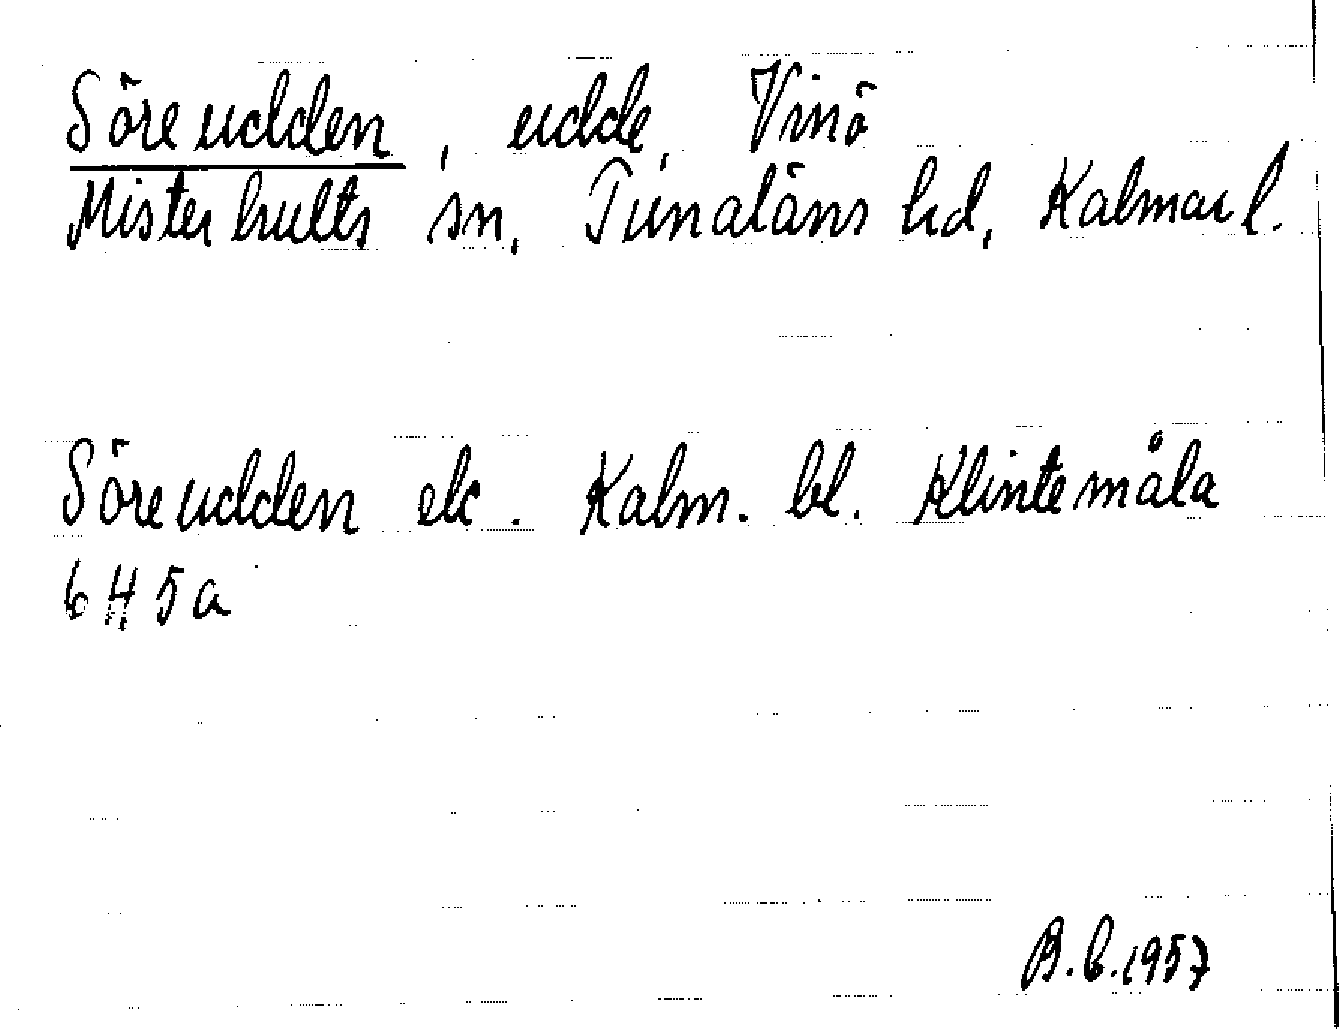 Söreudden, udde, Vinö
Misterhults sn, Tunaläns hd, Kalmar l.
Söreudden ek. Kalm. bl. Klintemåla
6H5a
B.b.1957